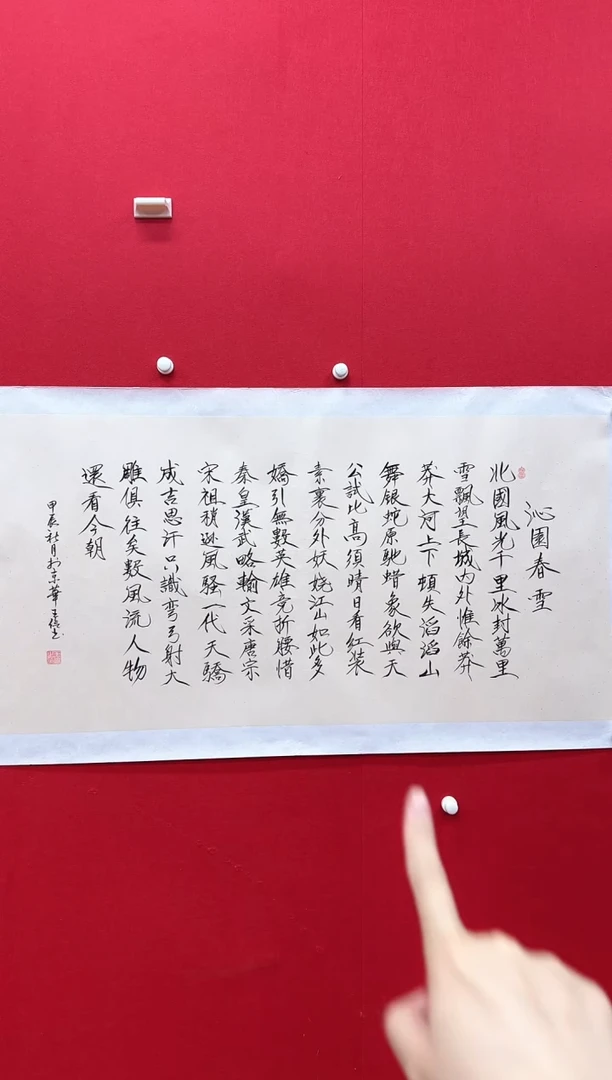 沁園春雪
北國風光千里冰封萬里
雪飄望長城內外惟餘莽
莽大河上下頓失滔滔山
舞银蛇原馳蜡象欲與天
公試比高須晴日看红装
素裹分外妖娆江山如此多
嬌引無數英雄竞折腰惜
秦皇漢武略輸文采唐宗
宋祖稍逊風騷一代天驕
成吉思汗只識弯弓射大
雕俱往矣數風流人物
還看今朝
甲辰秋月於京華